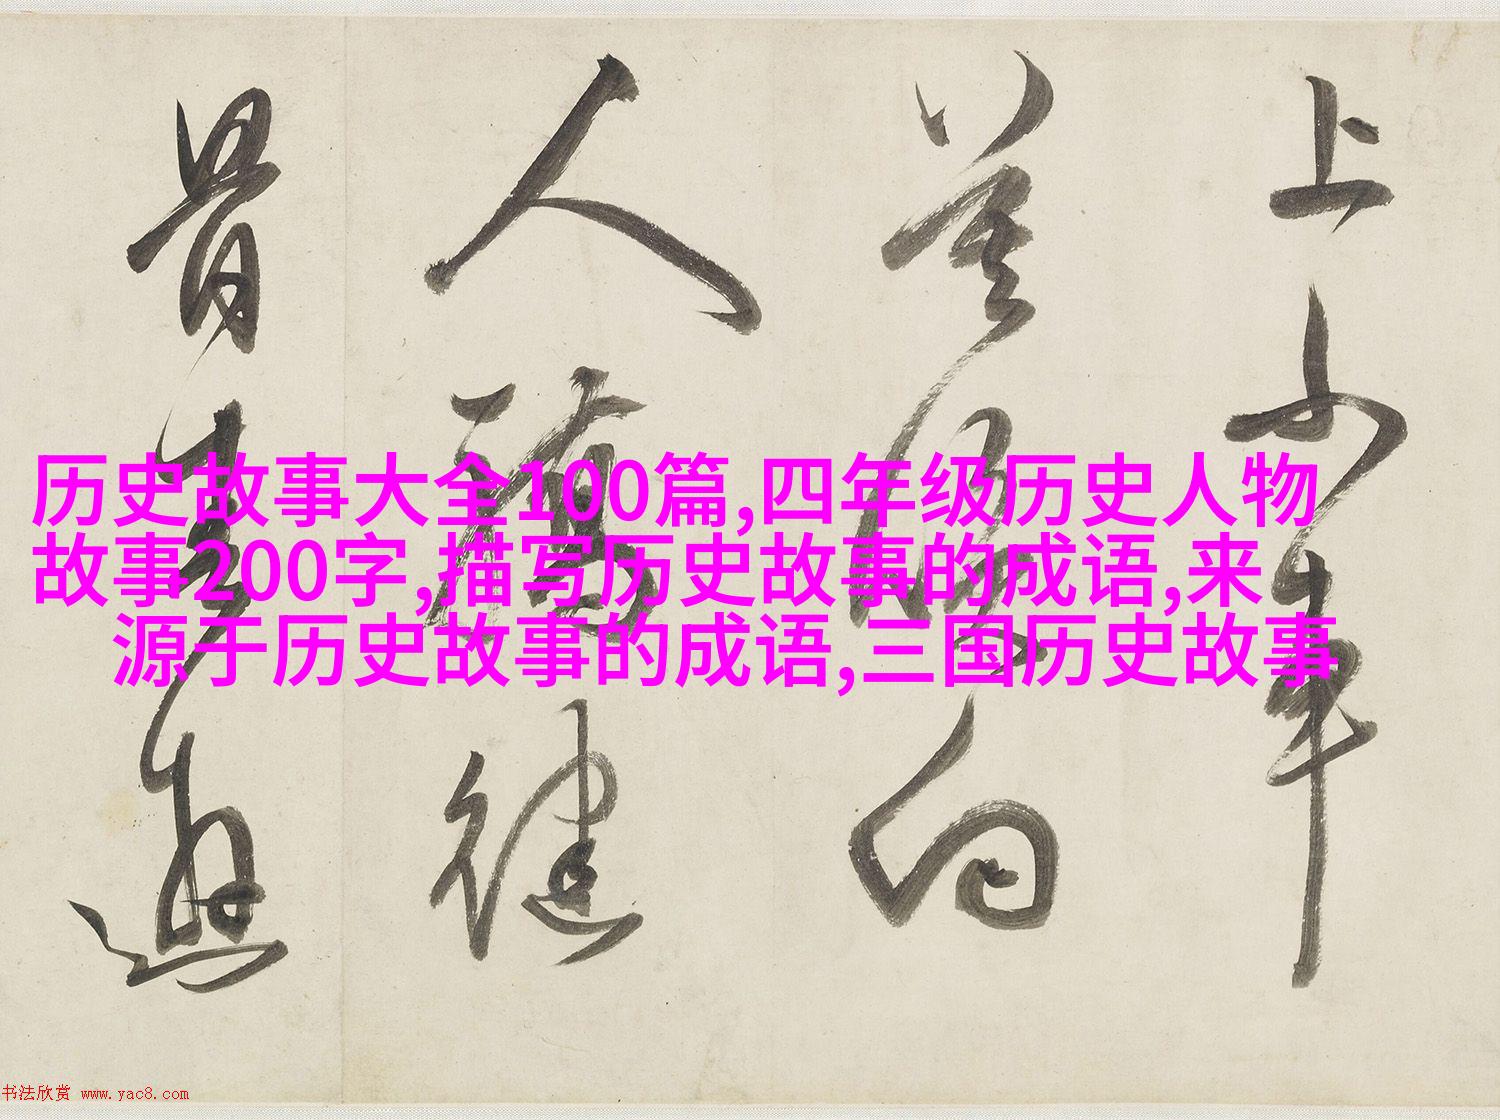 历史故事大全100篇,四年级历史人物
故事200字,描写历史故事的成语,来
源于历史故事的成语,三国历史故事
上小車
向
人健
骨遊
书法欣赏 www.yac8.com